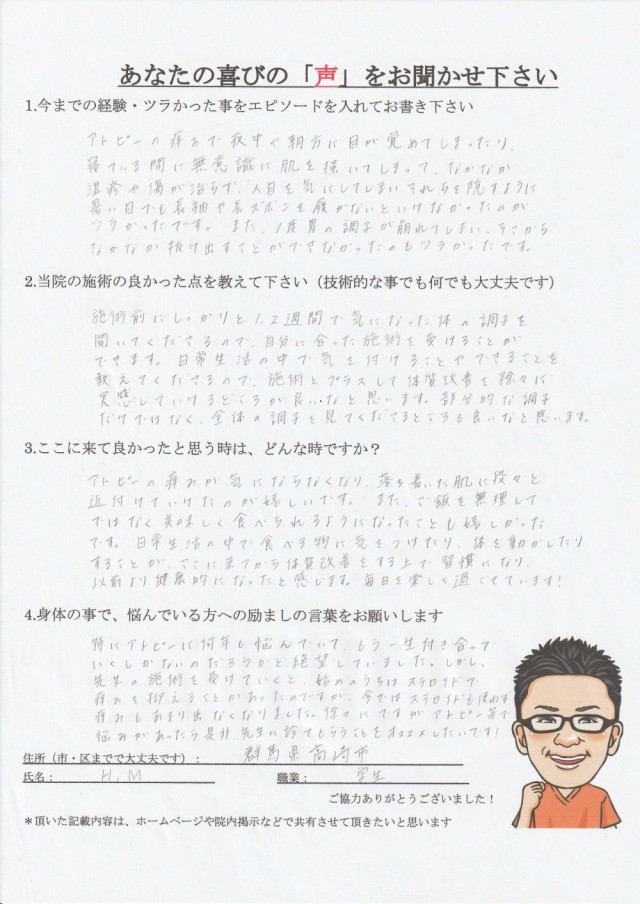 あなたの喜びの「声」をお聞かせ下さい
1.今までの経験・ツラかった事をエピソードを入れてお書き下さい
アトピーの痒みで夜中や朝方に目が覚めてしまったり、
寝ている間に無意識に肌を掻いてしまって、なかなか
湿疹や傷が治らず、人目を気にしてしまいそれらを隠すように
暑い日でも長袖や長ズボンを履かないといけなかったのが
ツラかったです。また、1度胃の調子が崩れてしまい、そこから
なかなか抜け出すことができなかったのもツラかったです。
2.当院の施術の良かった点を教えて下さい（技術的な事でも何でも大丈夫です）
施術前にしっかりと1、2週間で気になった体の調子を
聞いてくださるので、自分に合った施術を受けることが
できます。日常生活の中で気を付けることやできることを
教えてくださるので、施術とプラスして体質改善を徐々に
実感していけるところが良いなと思います。部分的な調子
だけではなく、全体の調子を見てくださるところも良いなと思います。
3.ここに来て良かったと思う時は、どんな時ですか？
アトピーの痒みが気にならなくなり、落ち着いた肌に段々と
近付けていけたのが嬉しいです。また、ご飯を無理して
ではなく美味しく食べられるようになったことも嬉しかった
です。日常生活の中で食べる物に気をつけたり、体を動かしたり
することが、ここに来てから体質改善をする上で習慣になり、
以前より健康的になったと感じます。毎日を楽しく過ごせています！
4.身体の事で、悩んでいる方への励ましの言葉をお願いします
特にアトピーに何年も悩んでいて、もう一生付き合って
いくしかないのだろうかと絶望していました。しかし、
先生の施術を受けていくと、始めのうちはステロイドで
痒みを抑えることがあったのですが、今ではステロイドも使わず
痒みもあまり出なくなりました。徐々にですがアトピー等で
悩みがあったら是非先生に診てもらうことをオススメしたいです！
住所（市・区までで大丈夫です）： 群馬県高崎市
氏名： H.M 職業： 学生
ご協力ありがとうございました！
＊頂いた記載内容は、ホームページや院内掲示などで共有させて頂きたいと思います